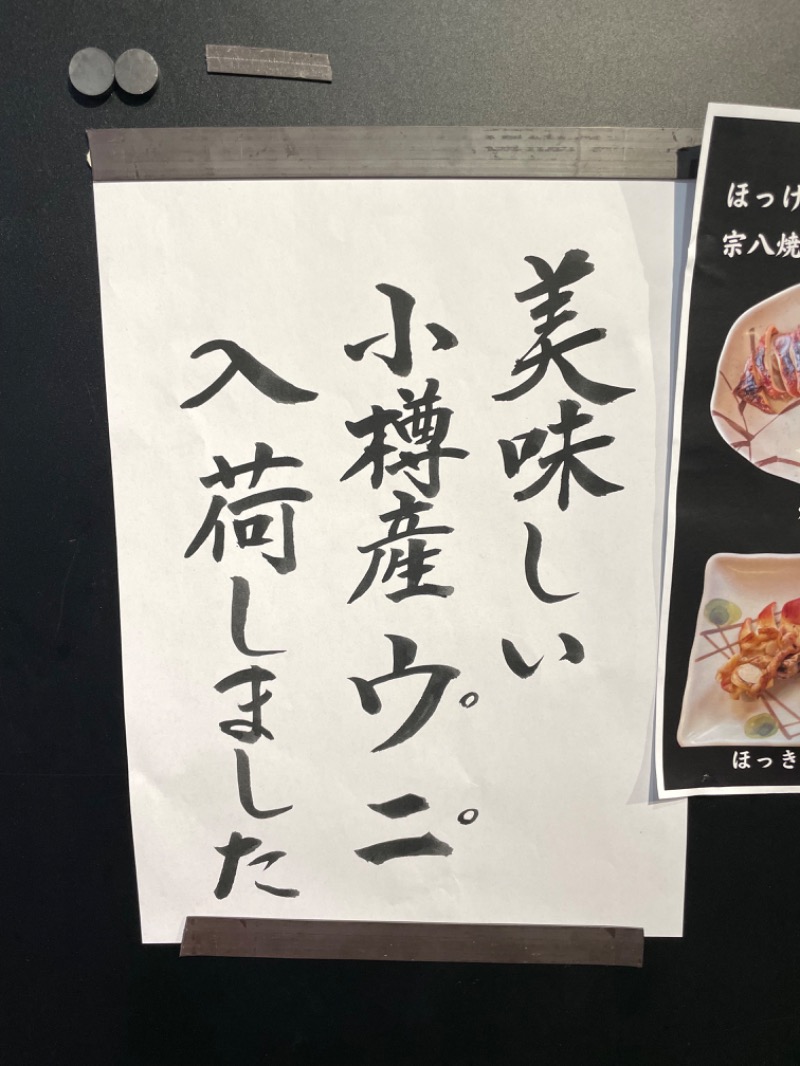 美味しい
小樽産ウ。ニ。
入荷しました
ほっけ
宗八焼
ほっき